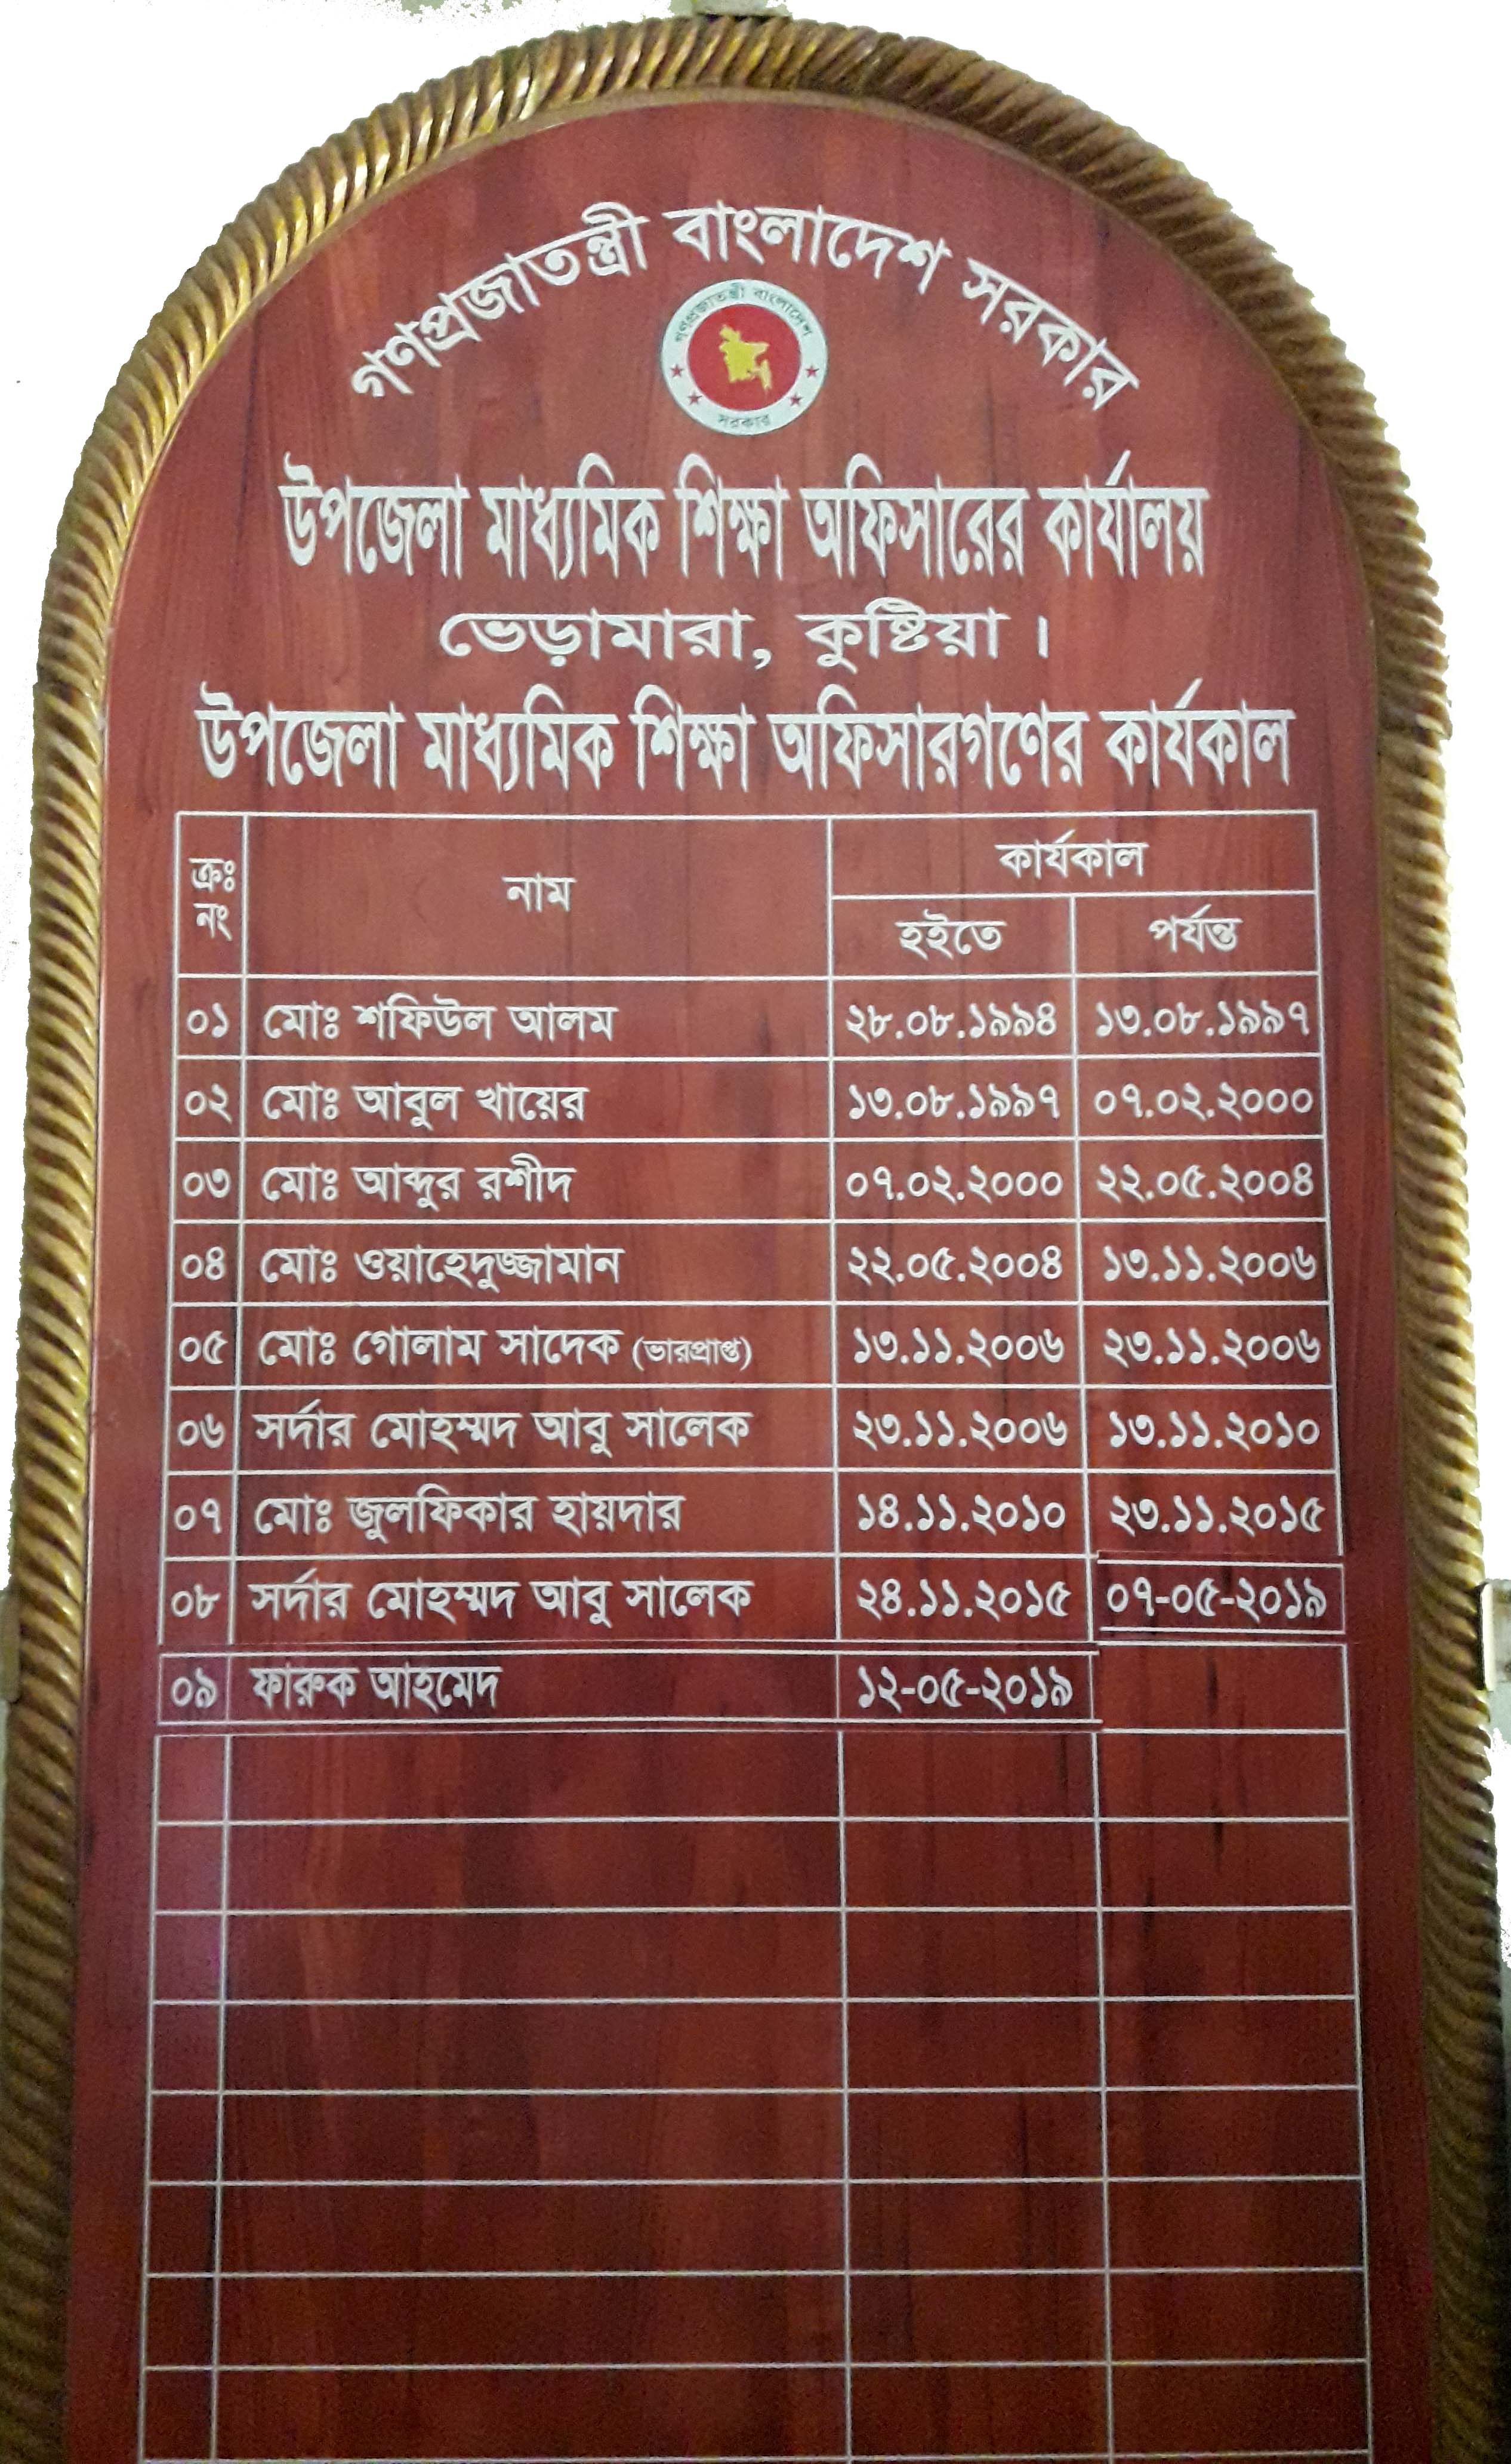 গণপ্রজাতন্ত্রী বাংলাদেশ সরকার
গণপ্রজাতন্ত্রী বাংলাদেশ
সরকার
উপজেলা মাধ্যমিক শিক্ষা অফিসারের কার্যালয়
ভেড়ামারা, কুষ্টিয়া ।
উপজেলা মাধ্যমিক শিক্ষা অফিসারগণের কার্যকাল
ক্রঃ নং নাম কার্যকাল
হইতে পর্যন্ত
০১ মোঃ শফিউল আলম ২৮.০৮.১৯৯৪ ১৩.০৮.১৯৯৭
০২ মোঃ আবুল খায়ের ১৩.০৮.১৯৯৭ ০৭.০২.২০০০
০৩ মোঃ আব্দুর রশীদ ০৭.০২.২০০০ ২২.০৫.২০০৪
০৪ মোঃ ওয়াহেদুজ্জামান ২২.০৫.২০০৪ ১৩.১১.২০০৬
০৫ মোঃ গোলাম সাদেক (ভারপ্রাপ্ত) ১৩.১১.২০০৬ ২৩.১১.২০০৬
০৬ সর্দার মোহম্মদ আবু সালেক ২৩.১১.২০০৬ ১৩.১১.২০১০
০৭ মোঃ জুলফিকার হায়দার ১৪.১১.২০১০ ২৩.১১.২০১৫
০৮ সর্দার মোহম্মদ আবু সালেক ২৪.১১.২০১৫ ০৭-০৫-২০১৯
০৯ ফারুক আহমেদ ১২-০৫-২০১৯